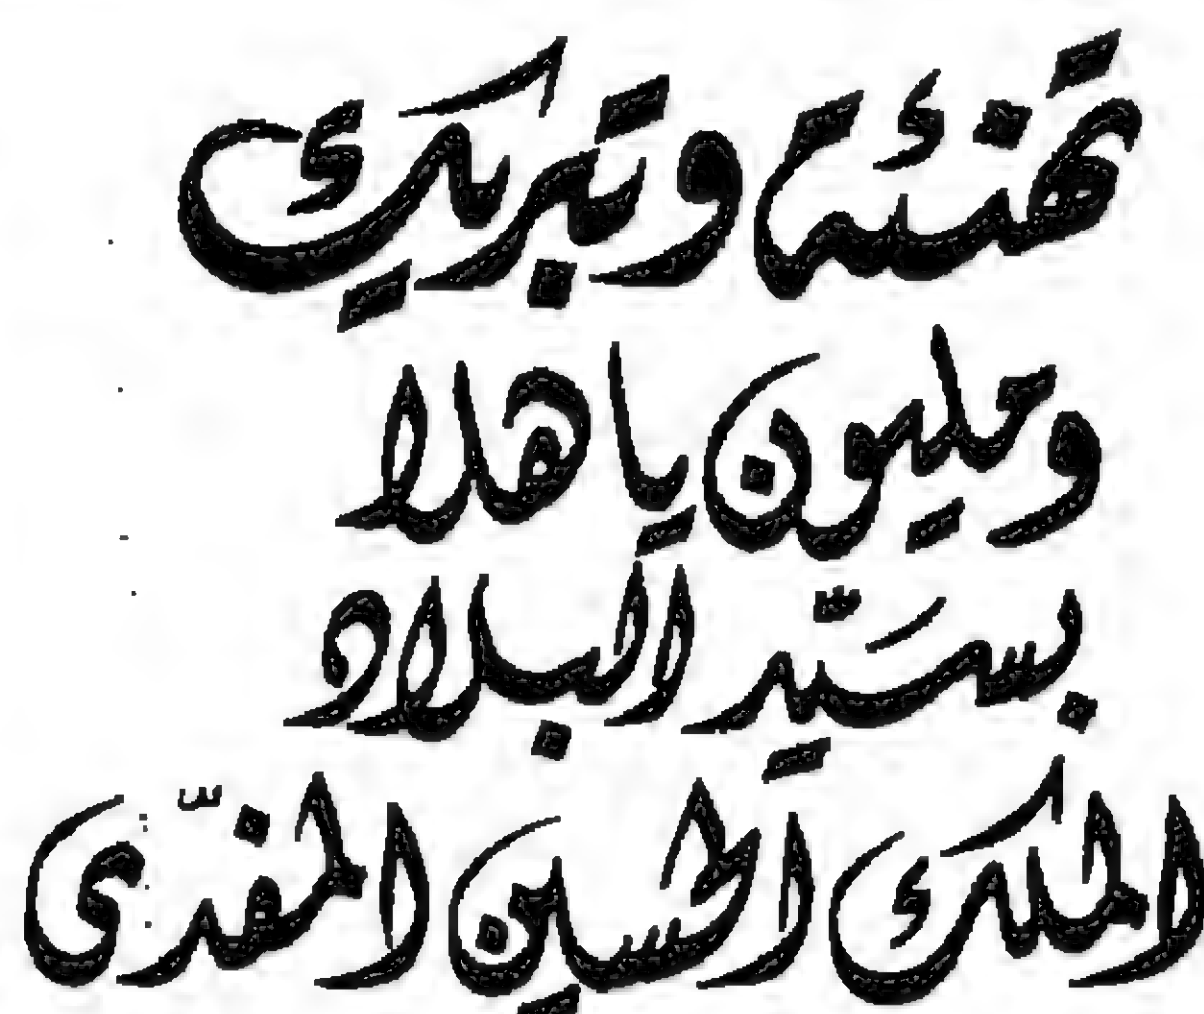 تهنئة وتبريك
ومليون ياهلا
بسَيّد البلاد
الملك الحسين المفدّى